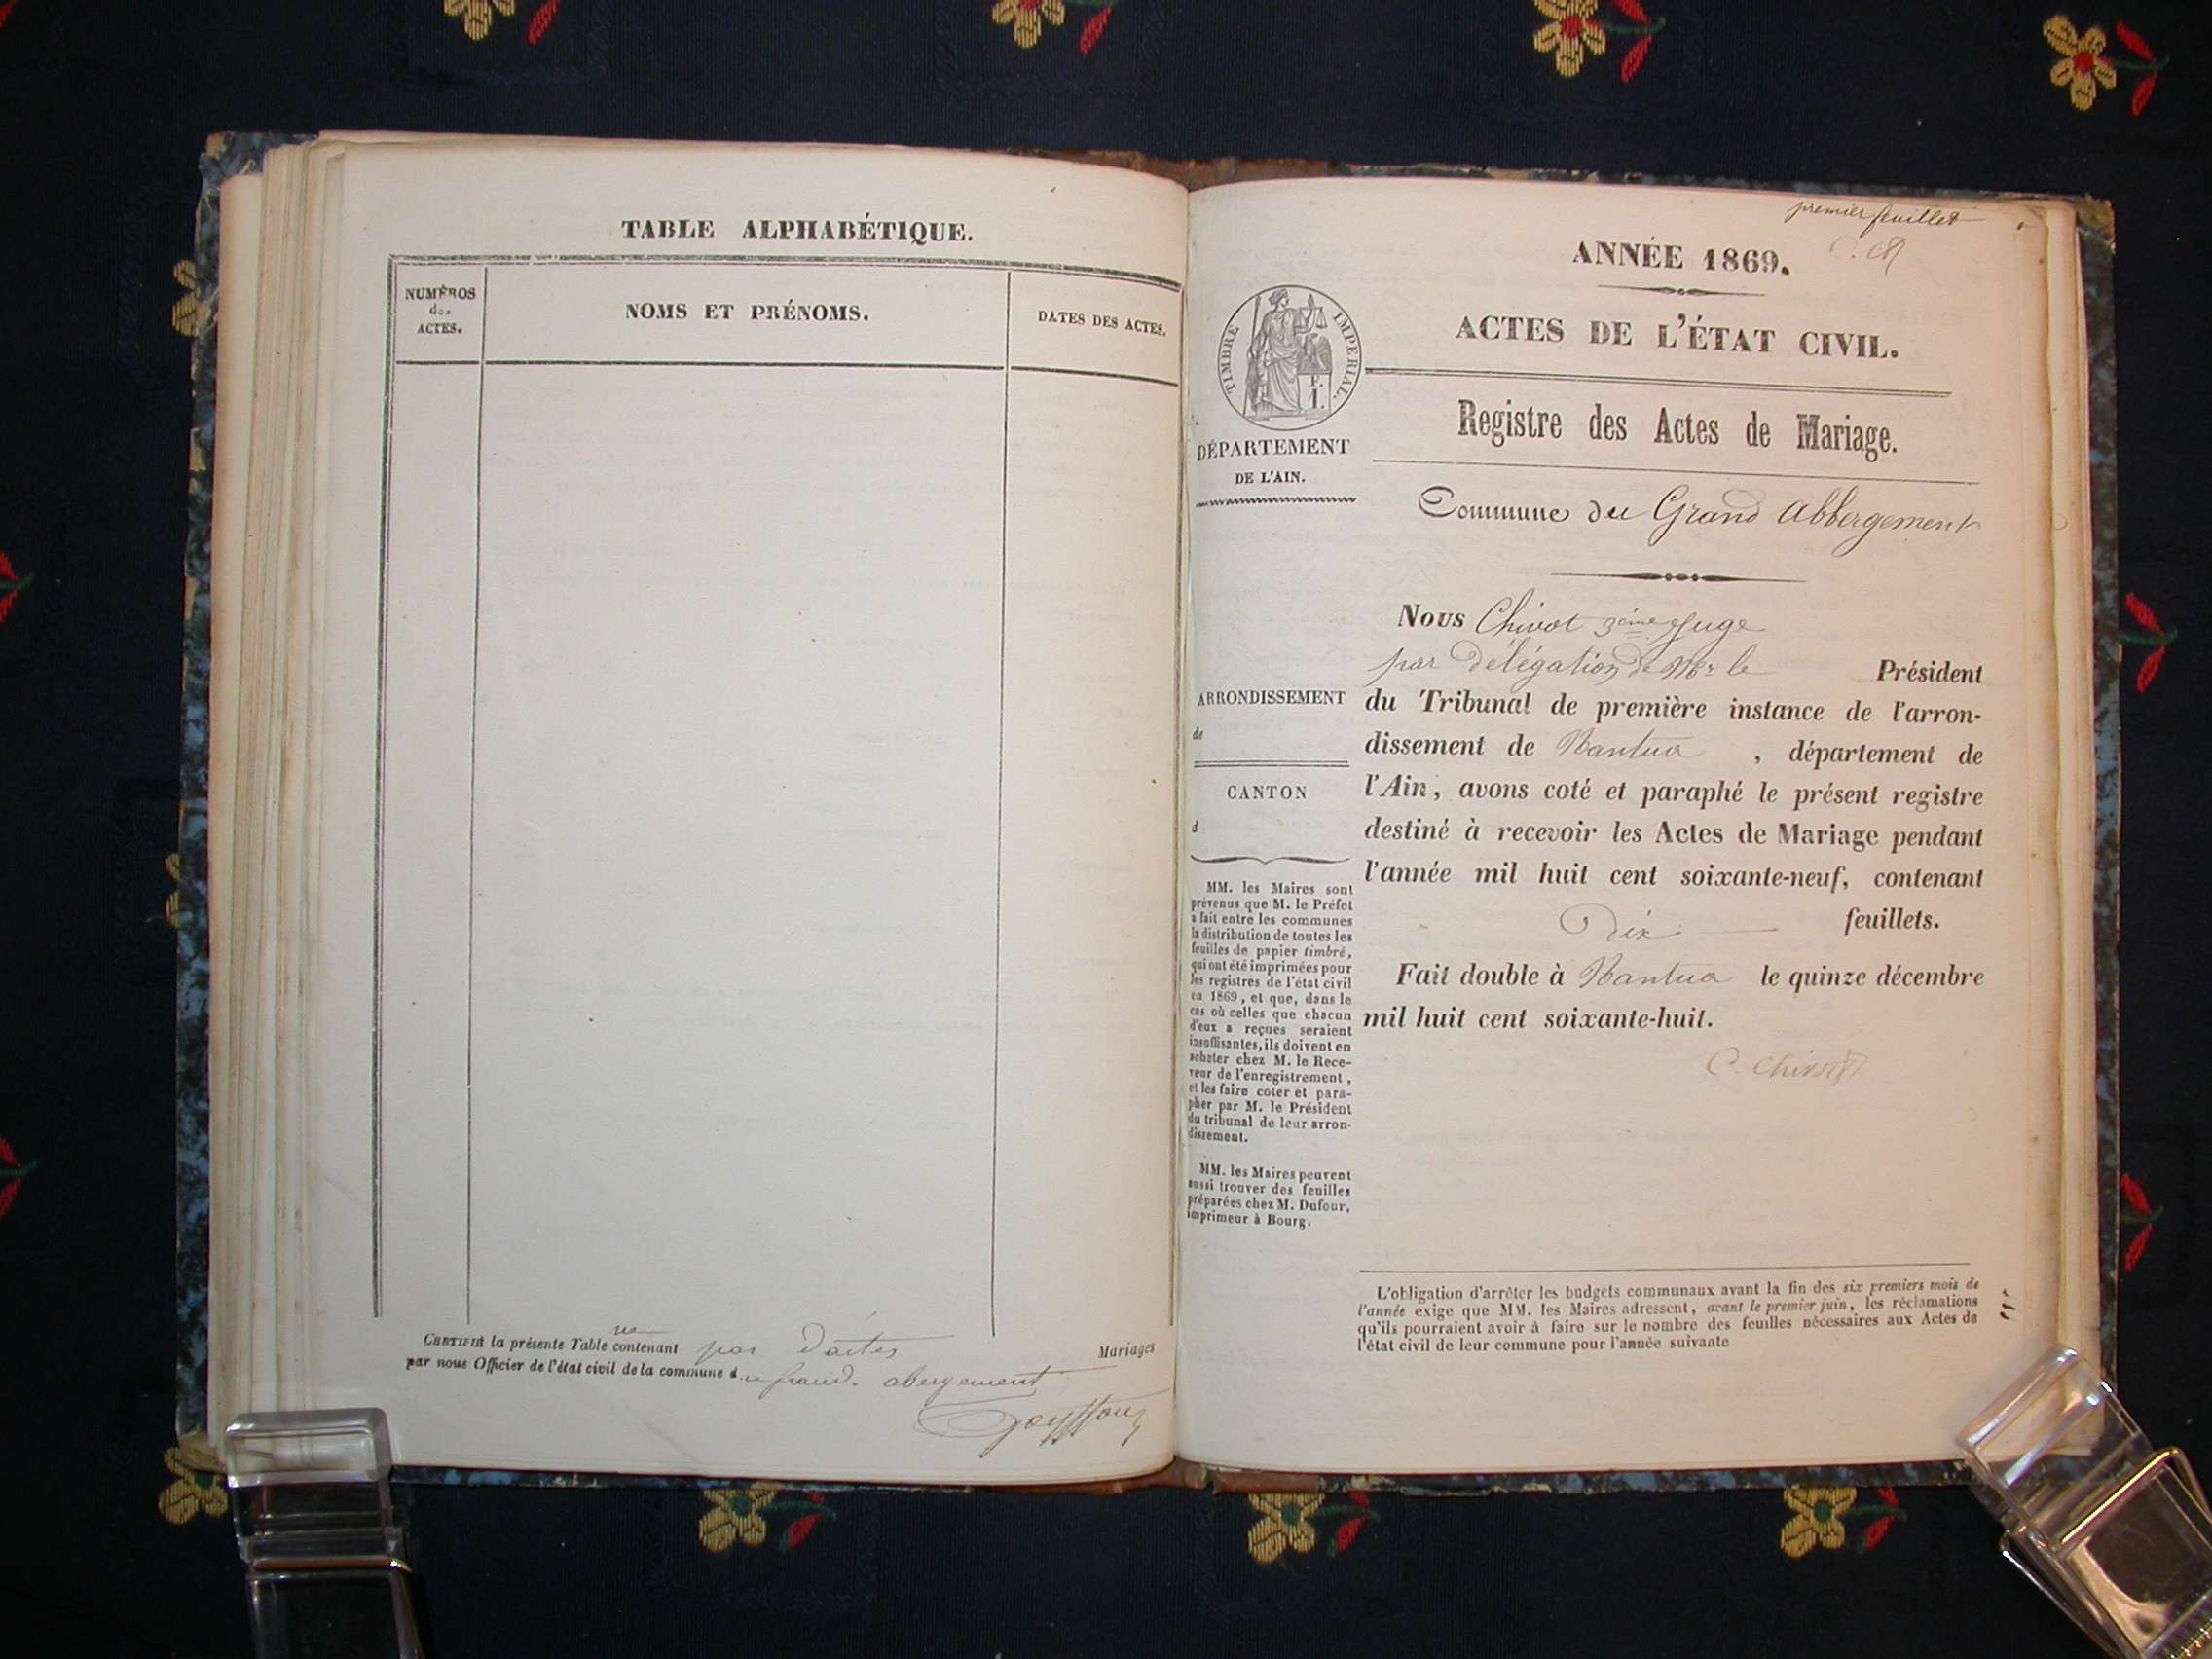 TABLE ALPHABÉTIQUE.
NUMÉROS
des
ACTES.
NOMS ET PRÉNOMS.
DATES DES ACTES.
ne
CERTIFIÉ la présente Table contenant par d'actes Mariages
par nous Officier de l'état civil de la commune du grand abergement
premier feuillet
ANNÉE 1869.
ACTES DE L'ÉTAT CIVIL.
TIMBRE IMPERIAL.
1.
Registre des Actes de Mariage.
DÉPARTEMENT
DE L'AIN.
Commune du Grand Abbergement
Nous Chivot 3ème Juge
par délégation de Mr le Président
du Tribunal de première instance de l'arron-
dissement de Nantua , département de
l'Ain, avons coté et paraphé le présent registre
destiné à recevoir les Actes de Mariage pendant
l'année mil huit cent soixante-neuf, contenant
Dix feuillets.
Fait double à Nantua le quinze décembre
mil huit cent soixante-huit.
C. Chivot
ARRONDISSEMENT
de
CANTON
d
MM. les Maires sont
prévenus que M. le Préfet
a fait entre les communes
la distribution de toutes les
feuilles de papier timbré,
qui ont été imprimées pour
les registres de l'état civil
en 1869, et que, dans le
cas où celles que chacun
d'eux a reçues seraient
insuffisantes, ils doivent en
acheter chez M. le Rece-
veur de l'enregistrement,
et les faire coter et para-
pher par M. le Président
du tribunal de leur arron-
dissement.
MM. les Maires peuvent
aussi trouver des feuilles
préparées chez M. Dufour,
imprimeur à Bourg.
L'obligation d'arrêter les budgets communaux avant la fin des six premiers mois de
l'année exige que MM. les Maires adressent, avant le premier juin, les réclamations
qu'ils pourraient avoir à faire sur le nombre des feuilles nécessaires aux Actes de
l'état civil de leur commune pour l'année suivante